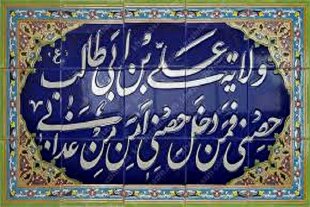 ولایة علي بن ابی طالب ع
حصنی فمن دخل حصنی امن من عذابی